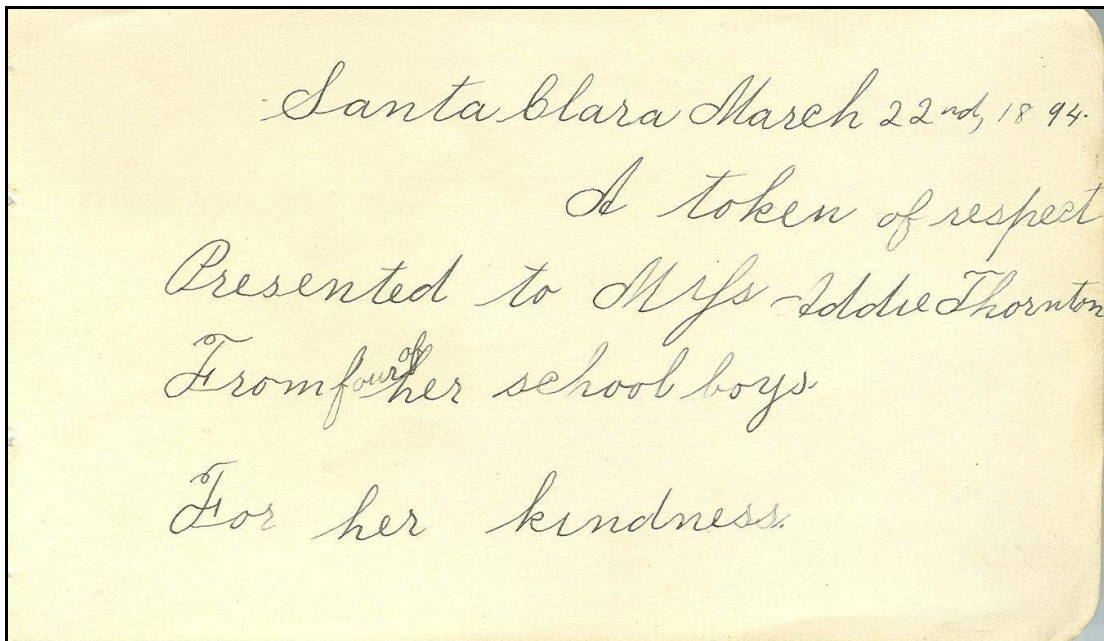 Santa Clara March 22nd, 1894.
A token of respect
Presented to Miss Addie Thornton
From four of her school boys
For her kindness.